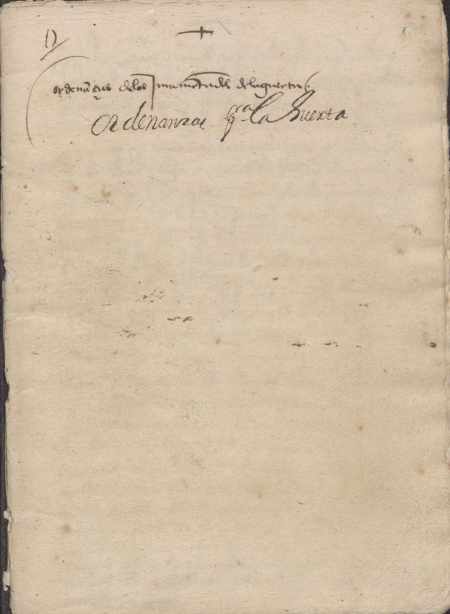 ordenãças de los de la guerta
Ordenanzas pª la Huerta